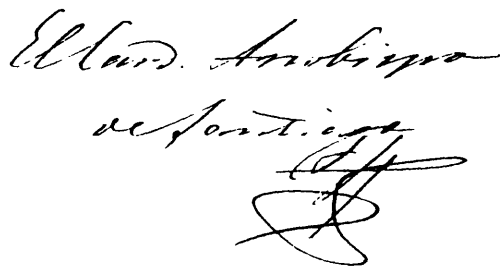 El Card. Arzobispo
de Santiago